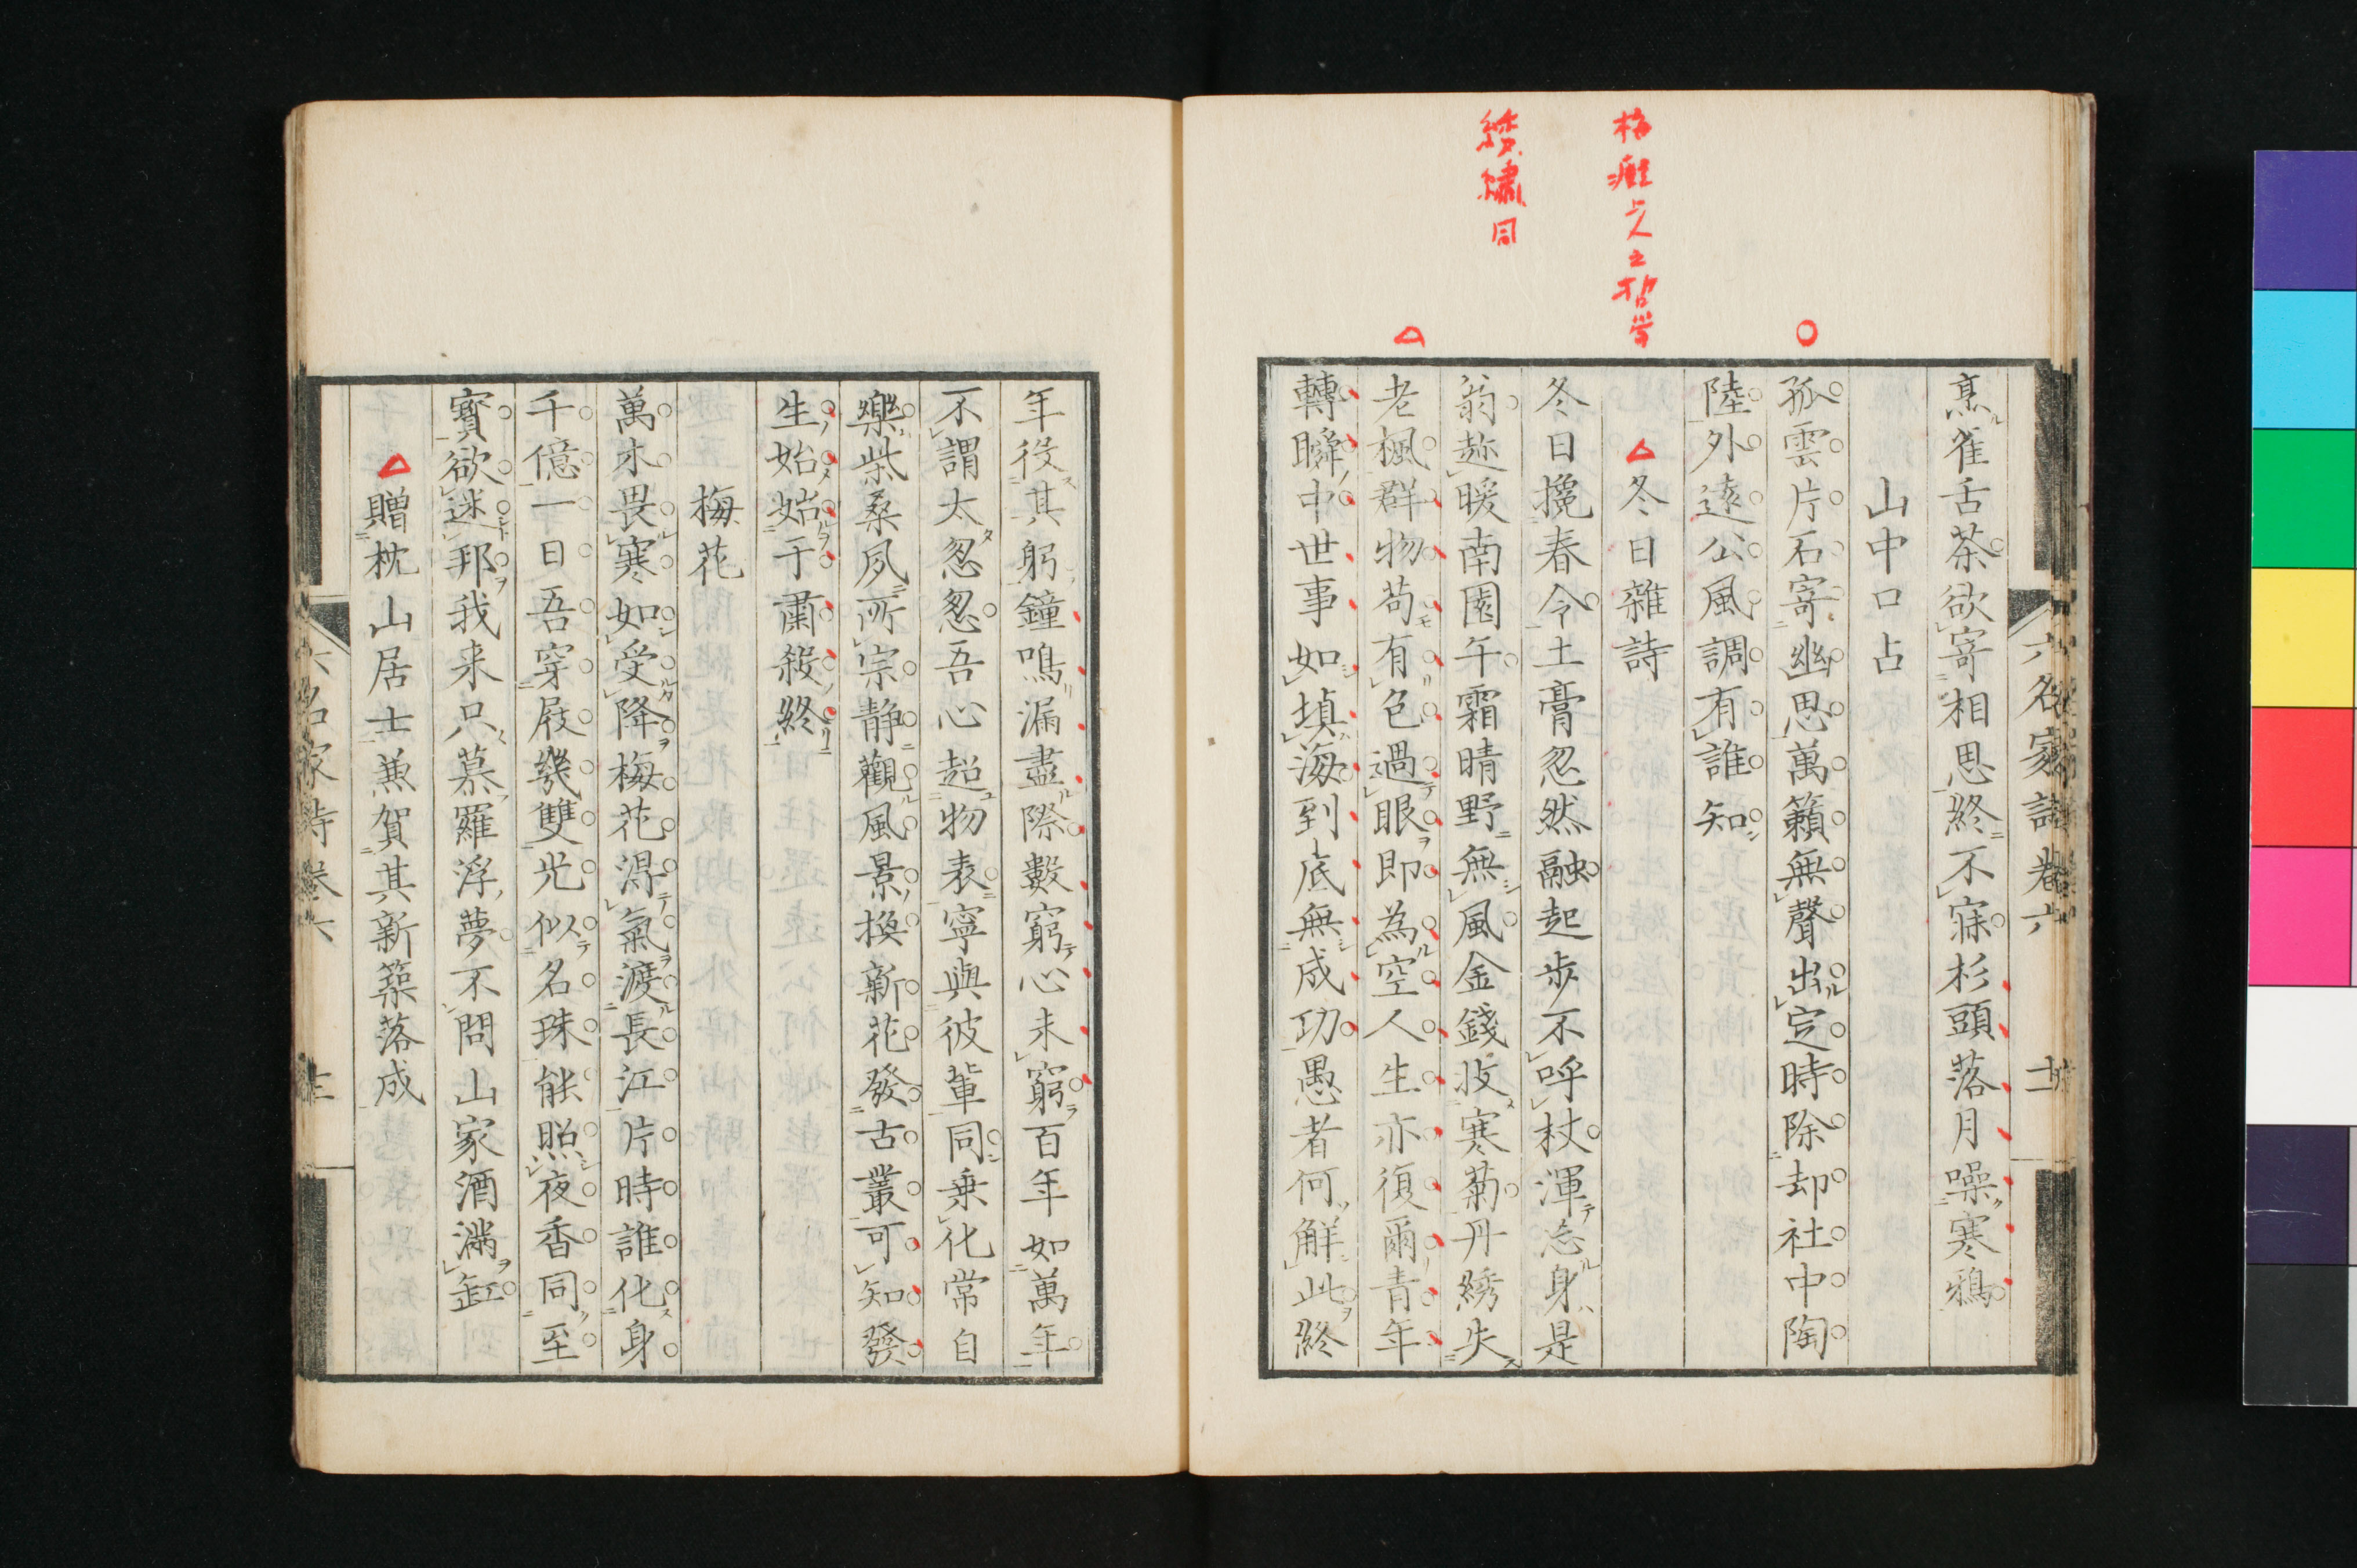 烹雀舌茶欲寄相思終不寐杉頭落月噪寒鴉
山中口占
孤雲片石寄幽思萬籟無聲出定時除却社中陶
陸外遠公風調有誰知
冬日雜詩
冬日攙春令土膏忽然融起步不呼杖渾忘身是
翁趂暖南園午霜晴野無風金錢收寒菊丹綉失
老楓群物苟有色過眼即為空人生亦復爾青年
轉瞬中世事如填海到底無成功愚者何解此終
年役其躬鐘鳴漏盡際數窮心未窮百年如萬年
不謂太忽忽吾心超物表寧與彼輩同乗化常自
樂柴桑夙所宗静觀風景換新花發古叢可知發
生始始于肅殺終
梅花
萬木畏寒如受降梅花得氣渡長江片時誰化身
千億一日吾穿屐幾雙光似名珠能照夜香同至
寶欲迷邦我来只慕羅浮夢不問山家酒滿缸
贈枕山居士兼賀其新築落成
六名家詩卷六
綉繡同